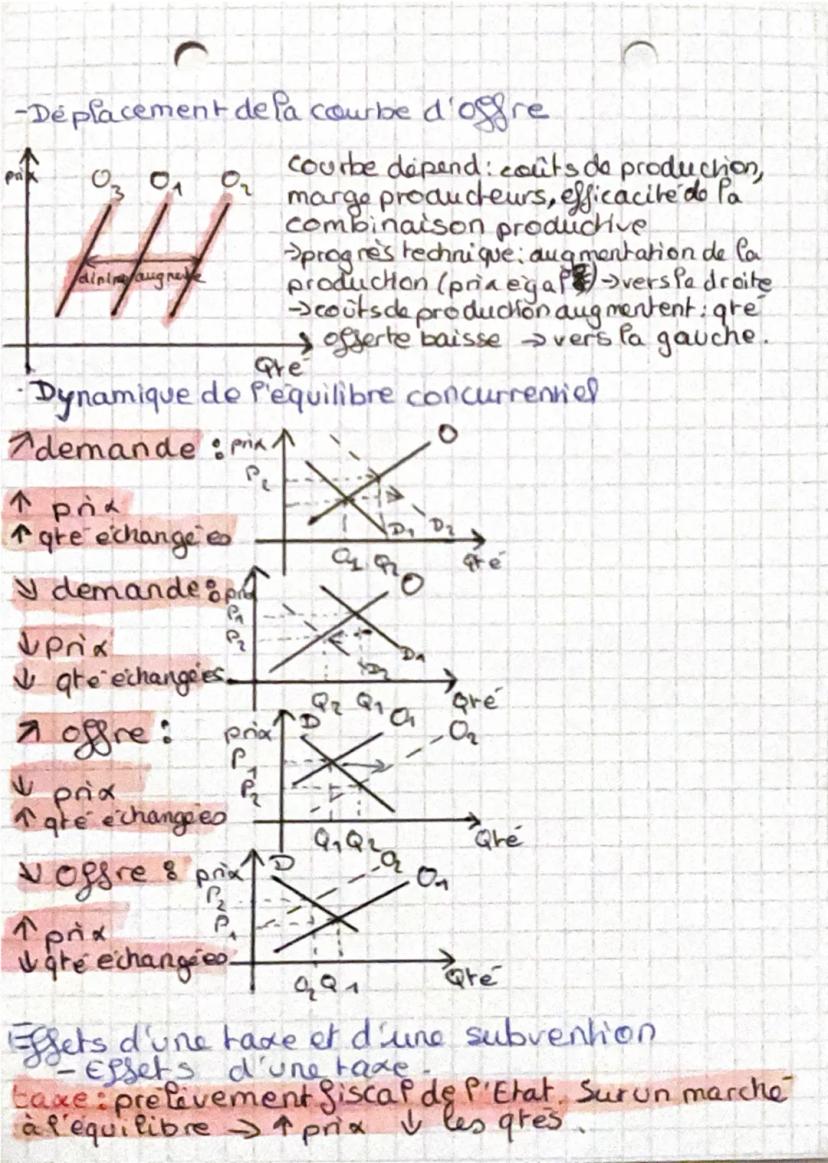 -Déplacement de la courbe d'offre
prix
O3 O1 O2
courbe dépend : coûts de production,
marge producteurs, efficacité de la
combinaison productive
→progrès technique : augmentation de la
diminue augmente
production (prix égal) →vers la droite
→coûts de production augmentent : qté
offerte baisse → vers la gauche.
Qté
· Dynamique de l'équilibre concurrentiel
↗demande : prix O
P2
↑ prix
↑ qté échangées D1 D2
Q1 Q2 Qté
↘ demande : prix O
P1
P2
↓ prix
D1
↓ qté échangées D2
Q2 Q1 Qté
↗ offre : prix D O1 O2
P1
↓ prix P2
↑ qté échangées
Q1 Q2 Qté
↘ Offre : prix D O2 O1
P2
↑ prix P1
↓ qté échangées
Q2 Q1 Qté
Effets d'une taxe et d'une subvention
- Effets d'une taxe.
taxe : prélèvement fiscal de l'Etat. Sur un marché
à l'équilibre → ↑ prix ↓ les qtés.